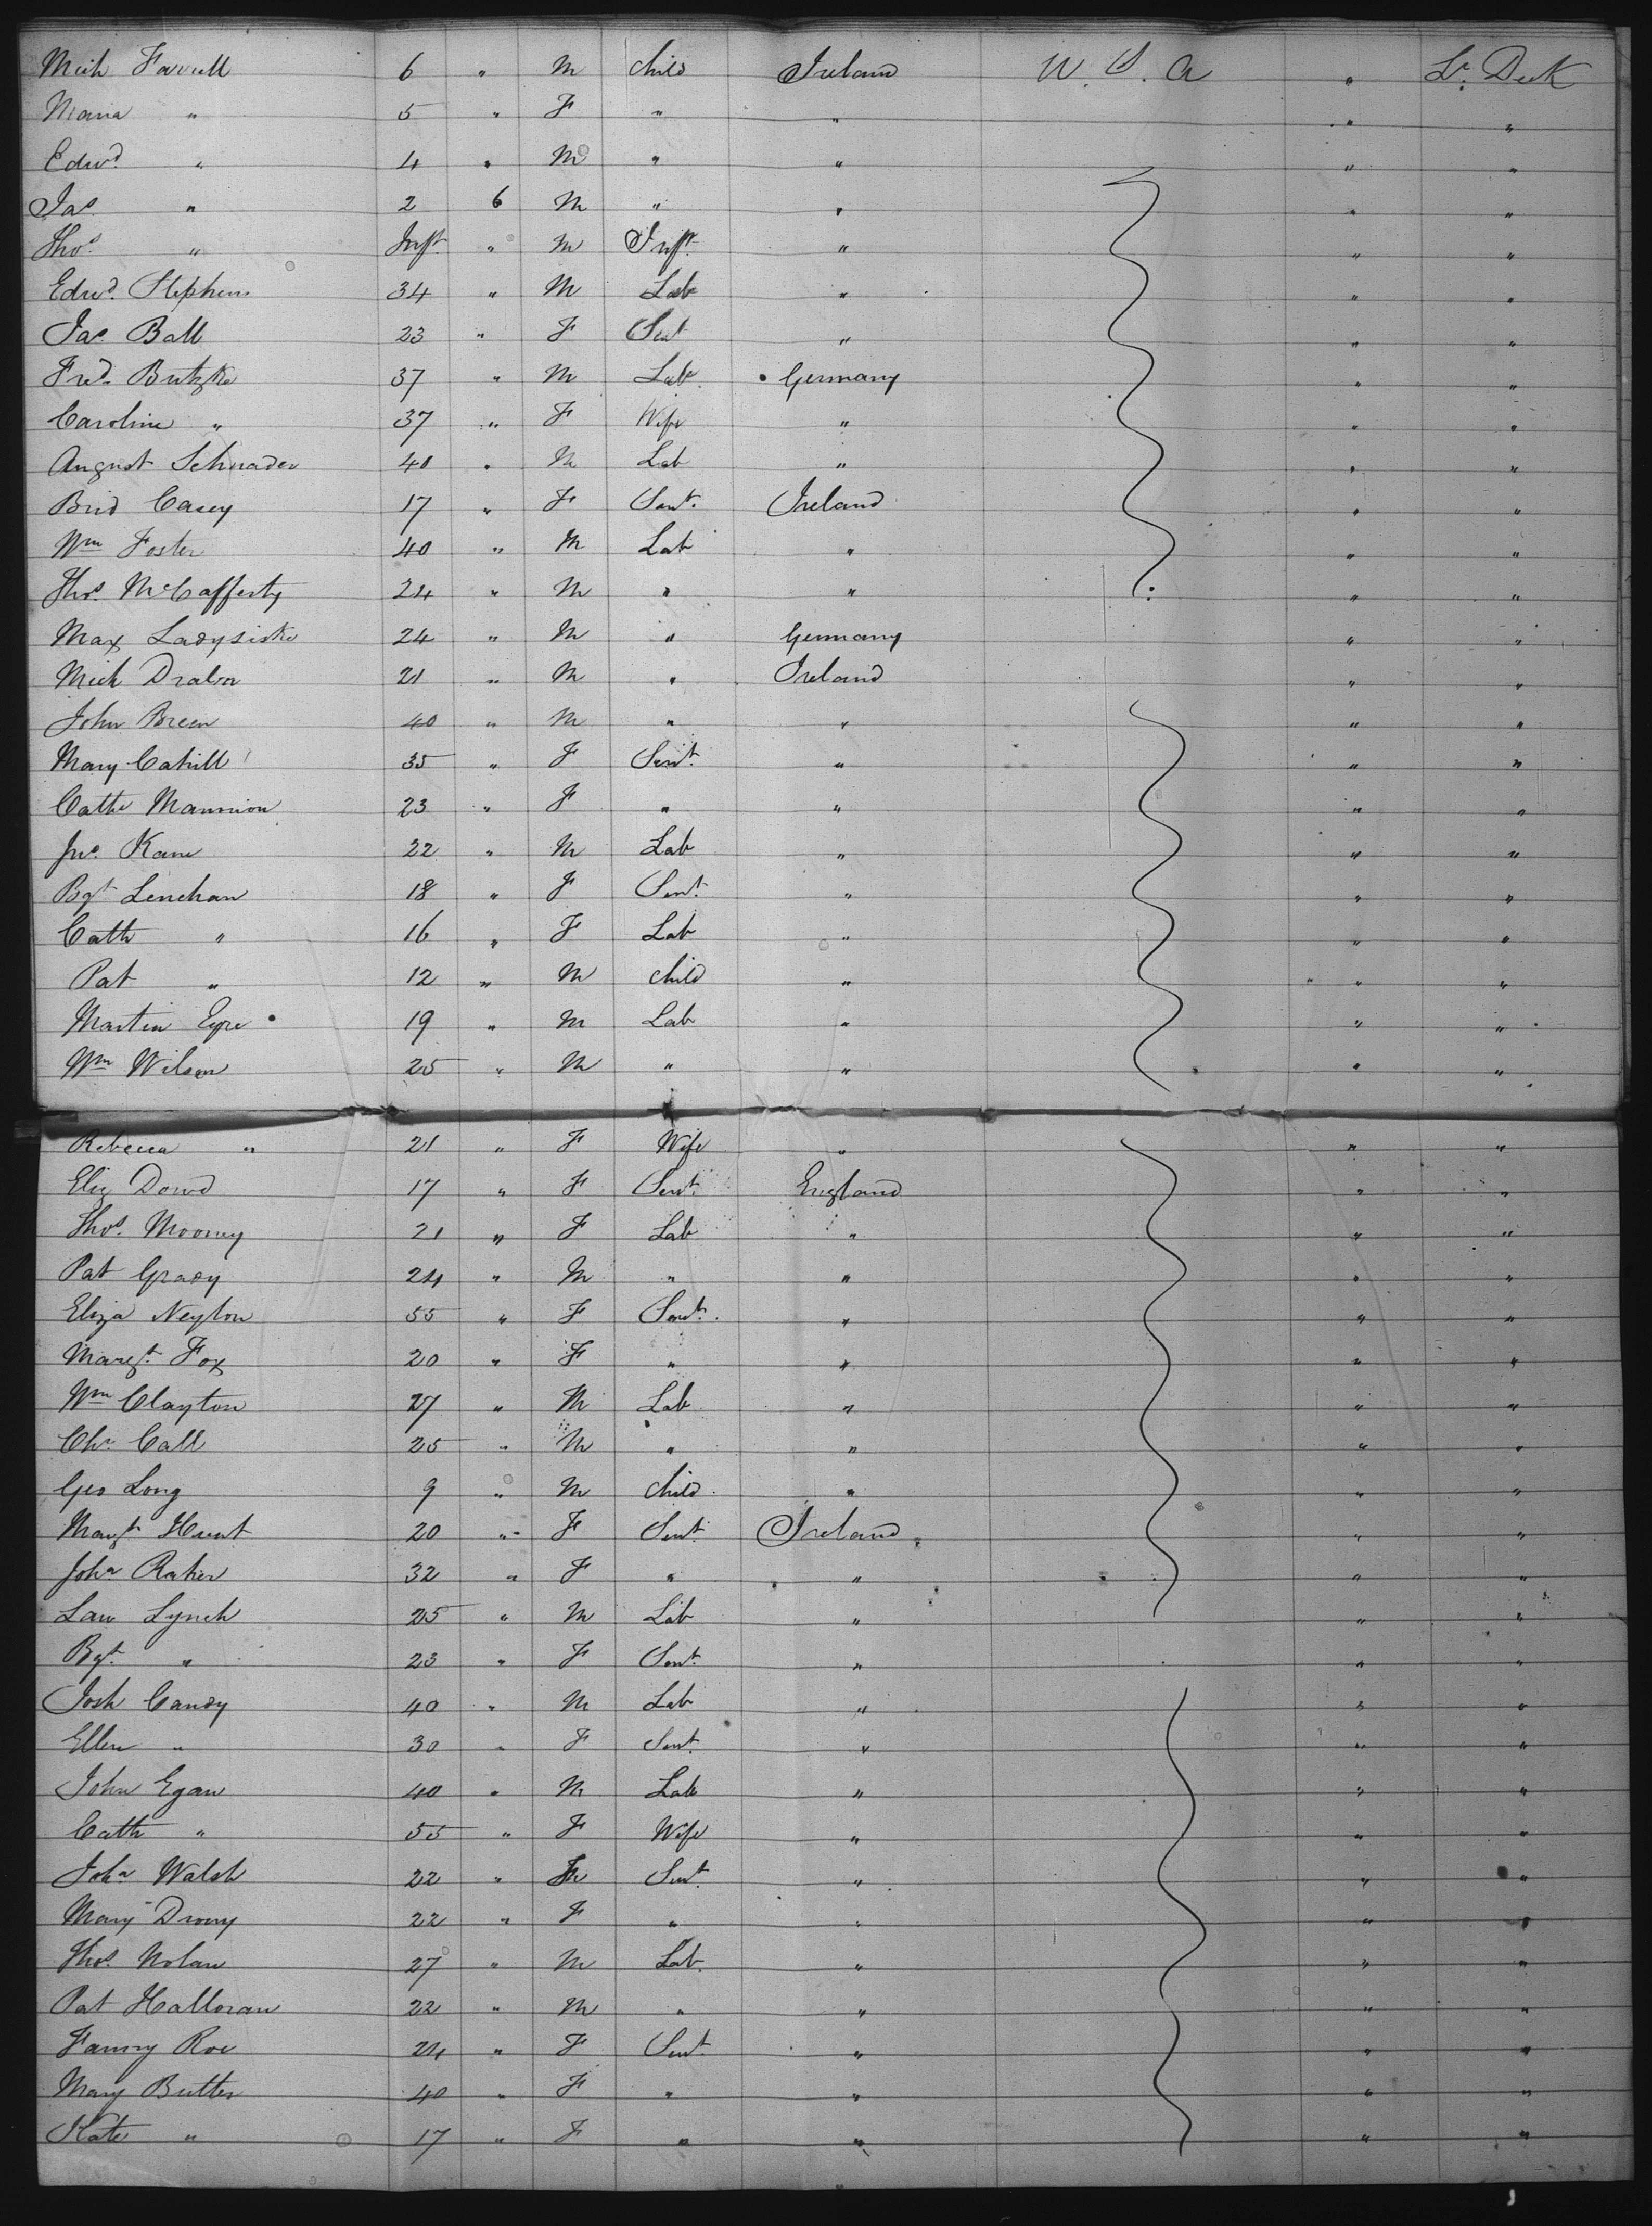 Mich Farrell 6 " M child Ireland U. S. A " Lr. Deck
Maria " 5 " F " " " "
Edwd. " 4 " M " " " "
Jas. " 2 6 M " " " "
Thos. " Inft. " M Inft. " " "
Edwd. Stephens 34 " M Lab " " "
Jas. Ball 23 " F Sevt " " "
Fred. Butzke 37 " M Lab. Germany " "
Caroline " 37 " F Wife " " "
August Schrader 40 " M Lab " " "
Brid Casey 17 " F Sevt. Ireland " "
Wm Foster 40 " M Lab " " "
Thos. McCafferty 24 " M " " " "
Max Ladysiske 24 " M " Germany " "
Mich Dralon 21 " M " Ireland " "
John Breen 40 " M " " " "
Mary Cahill 35 " F Sevt. " " "
Cathe Mannion 23 " F " " " "
Jno. Kane 22 " M Lab " " "
Bgt Lenehan 18 " F Sevt. " " "
Cath " 16 " F Lab " " "
Pat " 12 " M child " " "
Martin Eyre 19 " M Lab " " "
Wm Wilson 25 " M " " " "
Rebecca " 21 " F Wife " " "
Eliz Dowd 17 " F Sevt. England " "
Thos. Mooney 21 " F Lab " " "
Pat Grady 24 " M " " " "
Eliza Neylon 55 " F Sevt. " " "
Maregt. Fox 20 " F " " " "
Wm Clayton 27 " M Lab " " "
Chs. Call 25 " M " " " "
Geo Long 9 " M child " " "
Maygt. Hunt 20 " F Sevt Ireland " "
Joha Raher 32 " F " " " "
Law Lynch 25 " M Lab " " "
Bgt. " 23 " F Sevt. " " "
Josh Candy 40 " M Lab " " "
Ellen " 30 " F Sevt. " " "
John Egan 40 " M Lab " " "
Cath " 55 " F Wife " " "
Joha Walsh 22 " F Sevt. " " "
Mary Drony 22 " F " " " "
Thos. Nolan 27 " M Lab. " " "
Pat Halloran 22 " M " " " "
Fanny Roe 24 " F Sevt. " " "
Mary Butler 40 " F " " " "
Kate " 17 " F " " " "